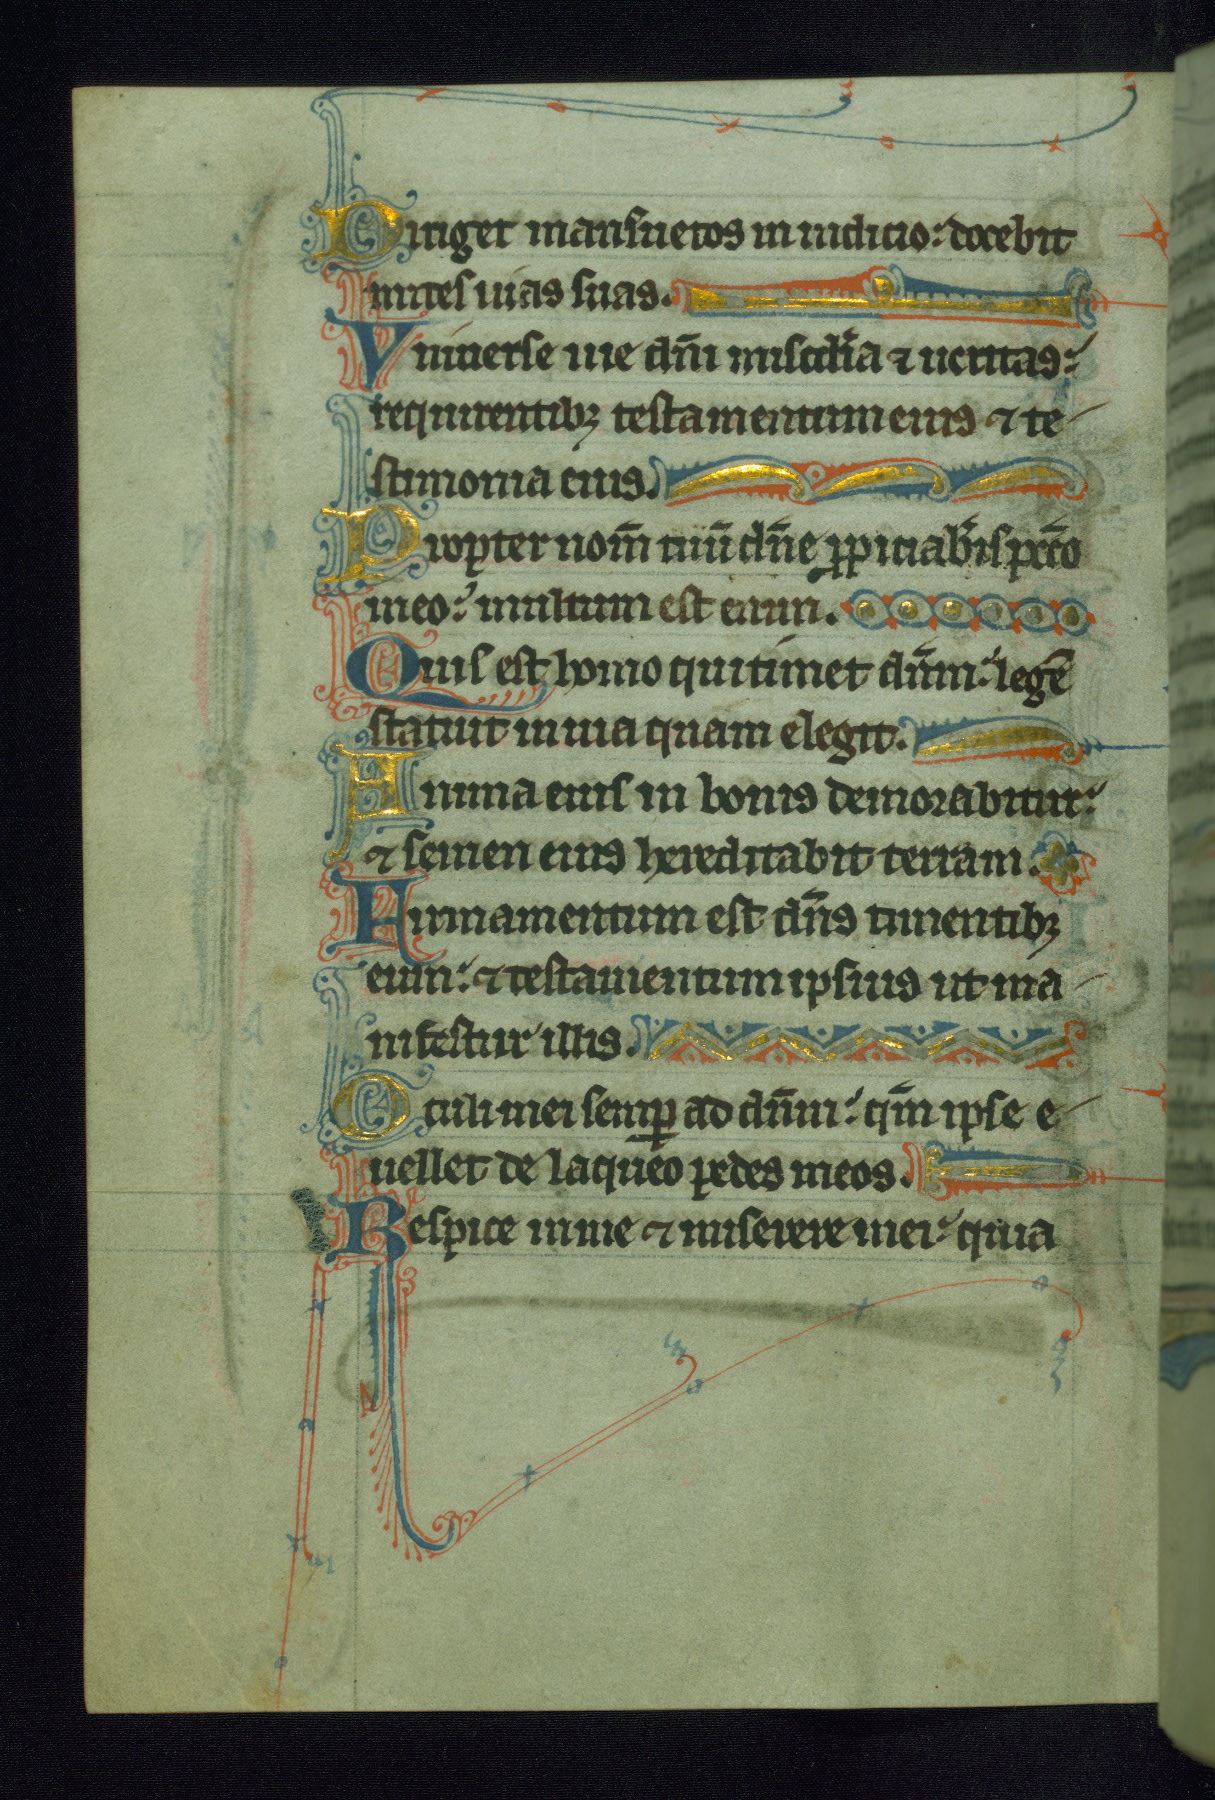 Diriget mansuetos in iudicio: docebit
mites uias suas.
Vniuerse uie dn̄i misc̄dia ⁊ ueritas:
requirentibꝫ testamentum eius ⁊ te
stimonia eius.
Propter nom̄ tuū dn̄e ꝓpiciabis pcc̄o
meo: multum est enim.
Quis est homo qui timet dn̄m: legē
statuit in uia quam elegit.
Anima eius in bonis demorabitur:
⁊ semen eius hereditabit terram.
Firmamentum est dn̄s timentibꝫ
eum: ⁊ testamentum ipsius ut ma
nifestur illis.
Oculi mei semꝑ ad dn̄m: qm̄ ipse e
uellet de laqueo pedes meos.
Respice in me ⁊ miserere mei: quia